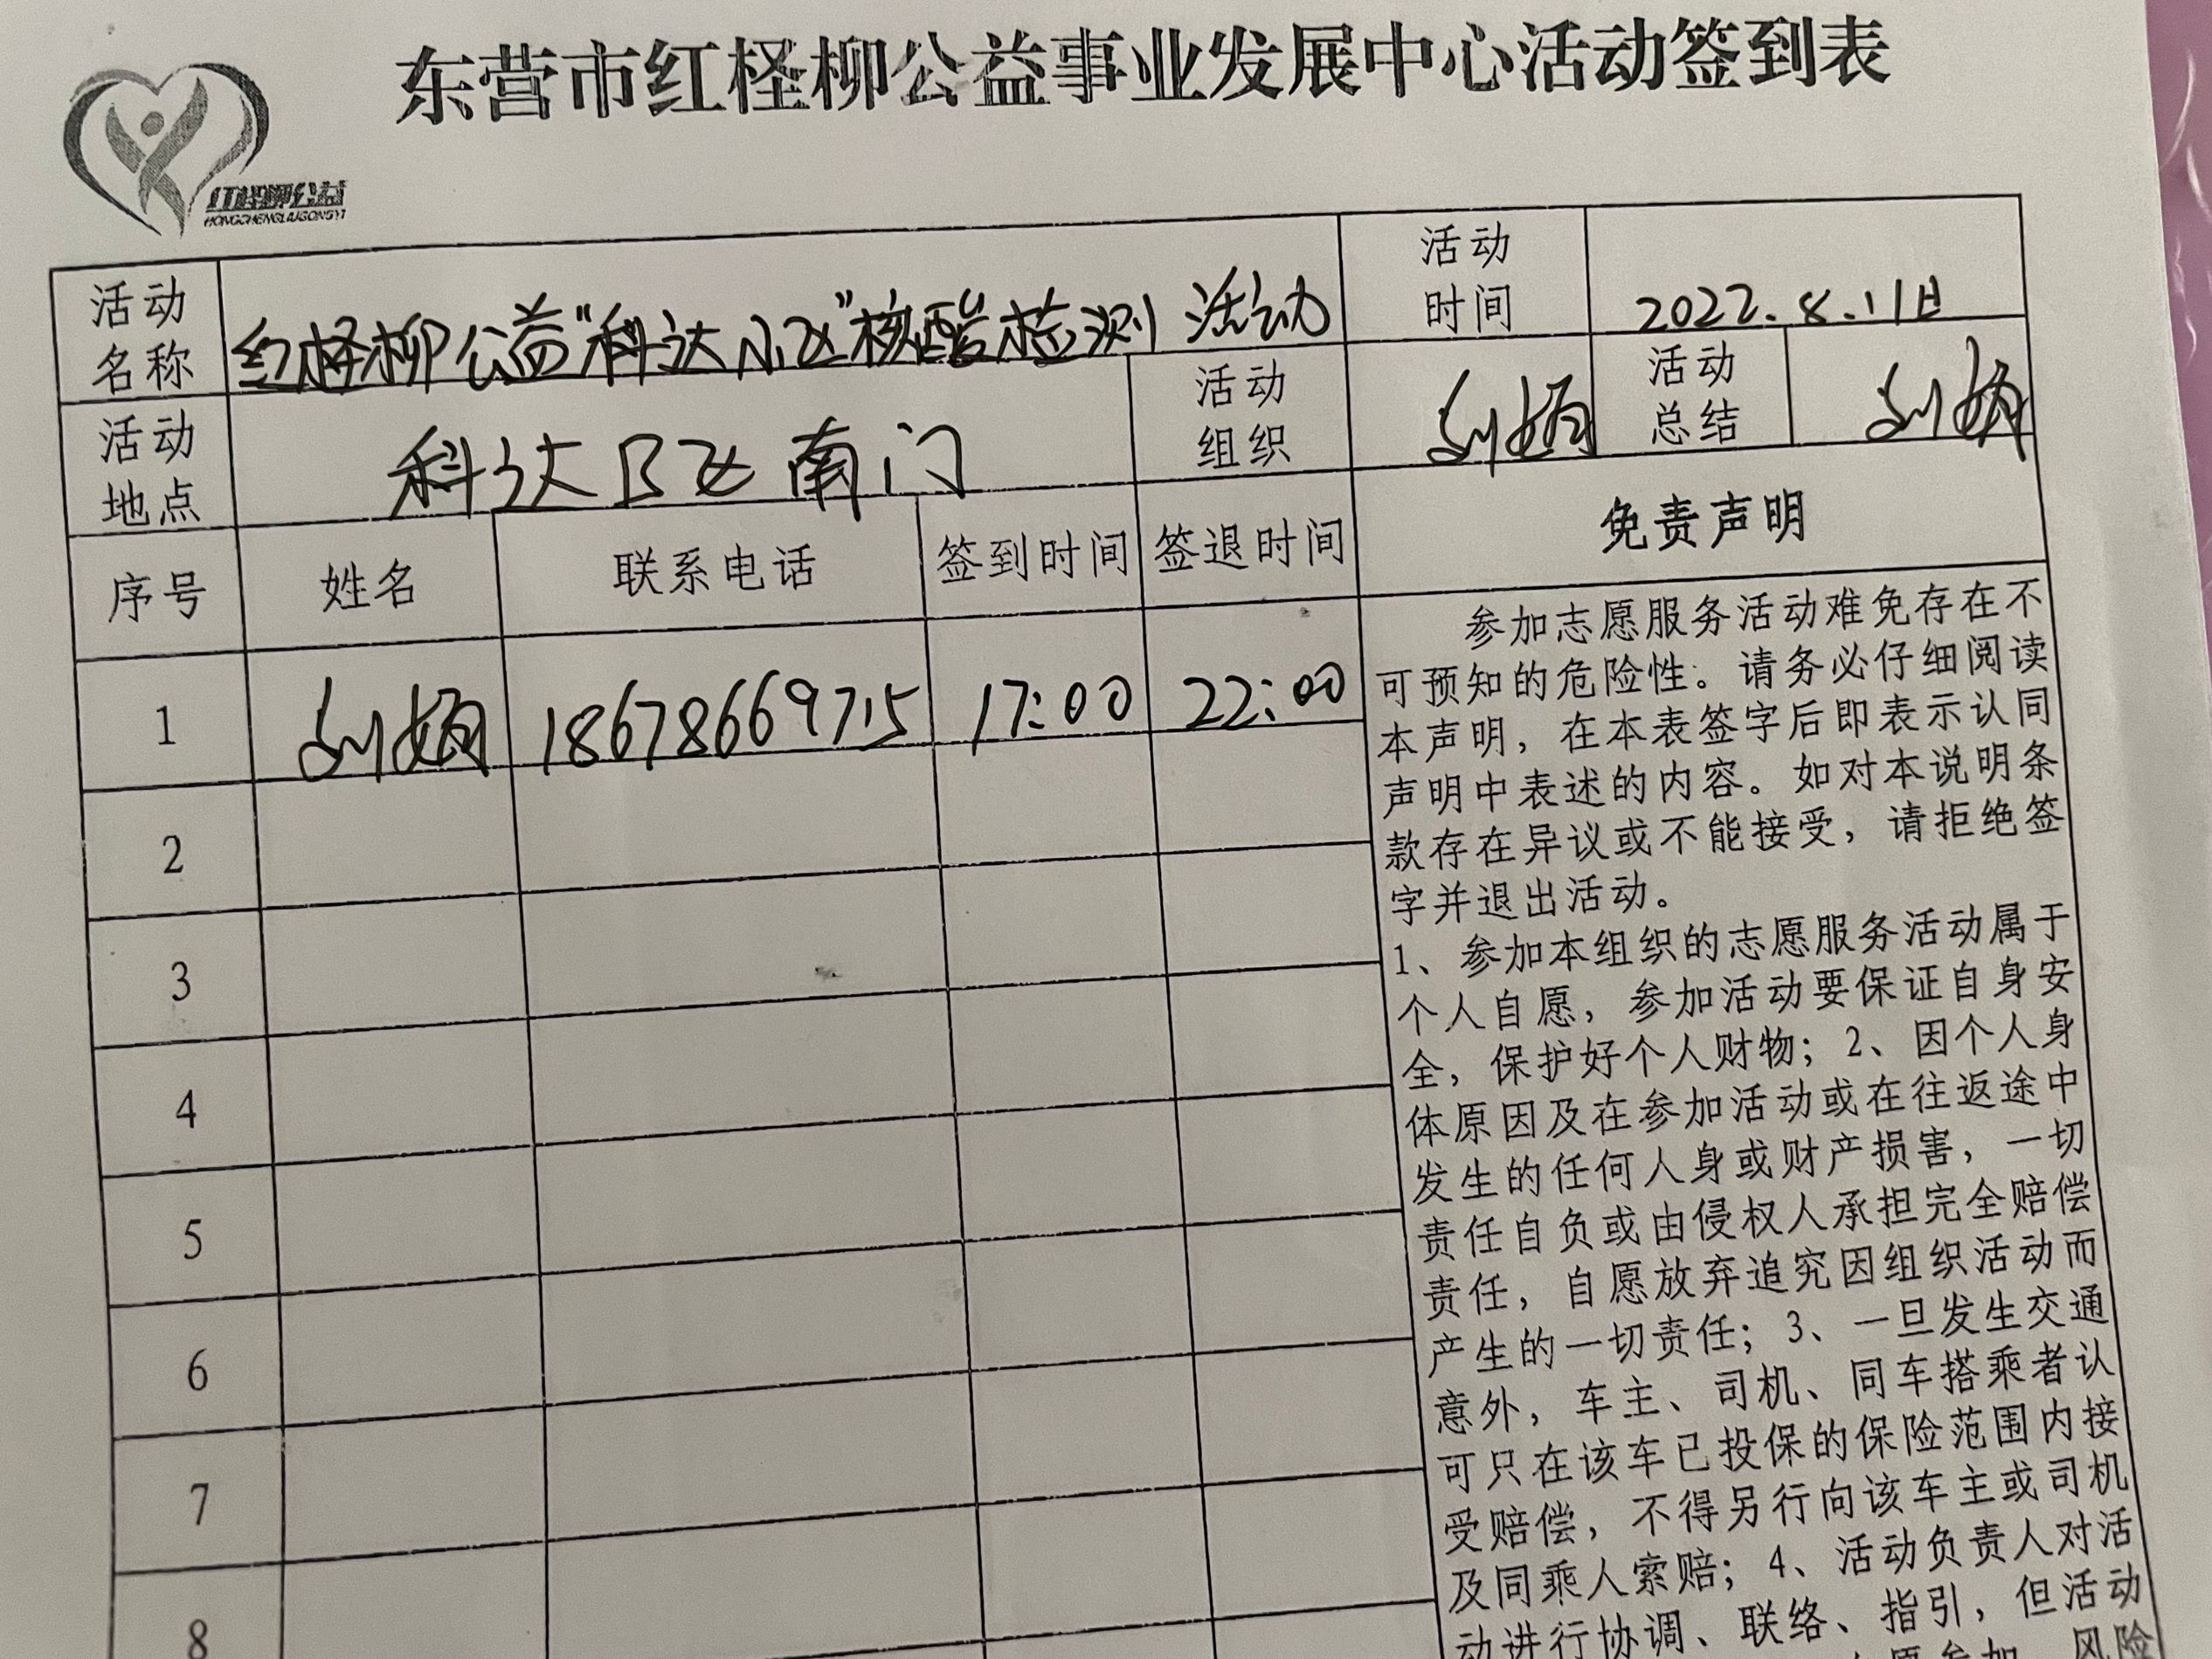 东营市红柽柳公益事业发展中心活动签到表
红柽柳公益
HONGCHENGLIUGONGYI
活动名称 红柽柳公益“科达小区”核酸检测 活动 活动时间 2022.8.11日
活动地点 科达B区南门 活动组织 刘娟 活动总结 刘娟
序号 姓名 联系电话 签到时间 签退时间 免责声明
1 刘娟 18678669715 17:00 22:00
2
3
4
5
6
7
8
参加志愿服务活动难免存在不
可预知的危险性。请务必仔细阅读
本声明，在本表签字后即表示认同
声明中表述的内容。如对本说明条
款存在异议或不能接受，请拒绝签
字并退出活动。
1、参加本组织的志愿服务活动属于
个人自愿，参加活动要保证自身安
全，保护好个人财物；2、因个人身
体原因及在参加活动或在往返途中
发生的任何人身或财产损害，一切
责任自负或由侵权人承担完全赔偿
责任，自愿放弃追究因组织活动而
产生的一切责任；3、一旦发生交通
意外，车主、司机、同车搭乘者认
可只在该车已投保的保险范围内接
受赔偿，不得另行向该车主或司机
及同乘人索赔；4、活动负责人对活
动进行协调、联络、指引，但活动
愿参加，风险